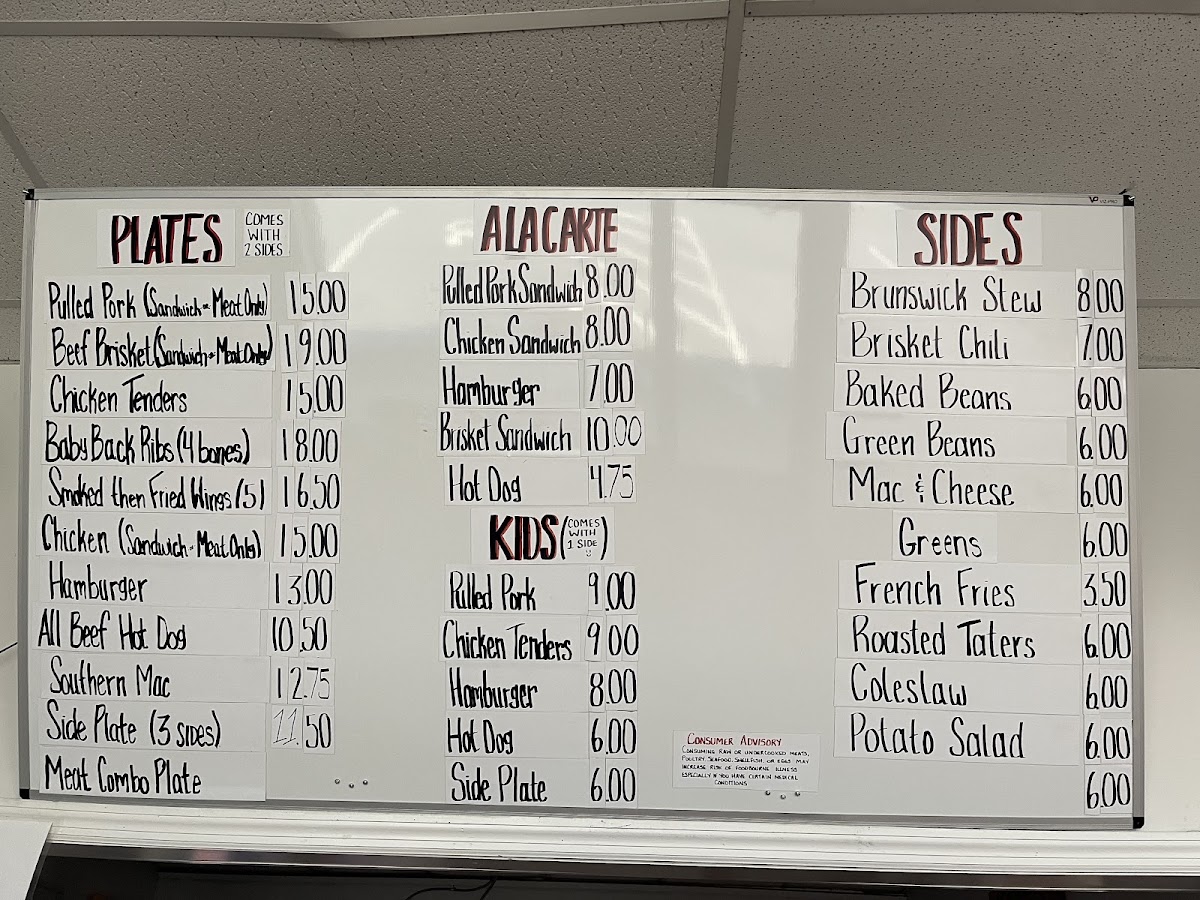 PLATES
COMES
WITH
2 SIDES
Pulled Pork (Sandwich - Meat Only) 15.00
Beef Brisket (Sandwich - Meat Only) 19.00
Chicken Tenders 15.00
Baby Back Ribs (4 bones) 18.00
Smoked then Fried Wings (5) 16.50
Chicken (Sandwich - Meat Only) 15.00
Hamburger 13.00
All Beef Hot Dog 10.50
Southern Mac 12.75
Side Plate (3 SIDES) 11.50
Meat Combo Plate
ALACARTE
Pulled Pork Sandwich 8.00
Chicken Sandwich 8.00
Hamburger 7.00
Brisket Sandwich 10.00
Hot Dog 4.75
KIDS (COMES
WITH
1 SIDE)
Pulled Pork 9.00
Chicken Tenders 9.00
Hamburger 8.00
Hot Dog 6.00
Side Plate 6.00
CONSUMER ADVISORY
CONSUMING RAW OR UNDERCOOKED MEATS,
POULTRY, SEAFOOD, SHELLFISH, OR EGGS MAY
INCREASE RISK OF FOODBOURNE ILLNESS
ESPECIALLY IF YOU HAVE CERTAIN MEDICAL
CONDITIONS
SIDES
Brunswick Stew 8.00
Brisket Chili 7.00
Baked Beans 6.00
Green Beans 6.00
Mac & Cheese 6.00
Greens 6.00
French Fries 3.50
Roasted Taters 6.00
Coleslaw 6.00
Potato Salad 6.00
6.00